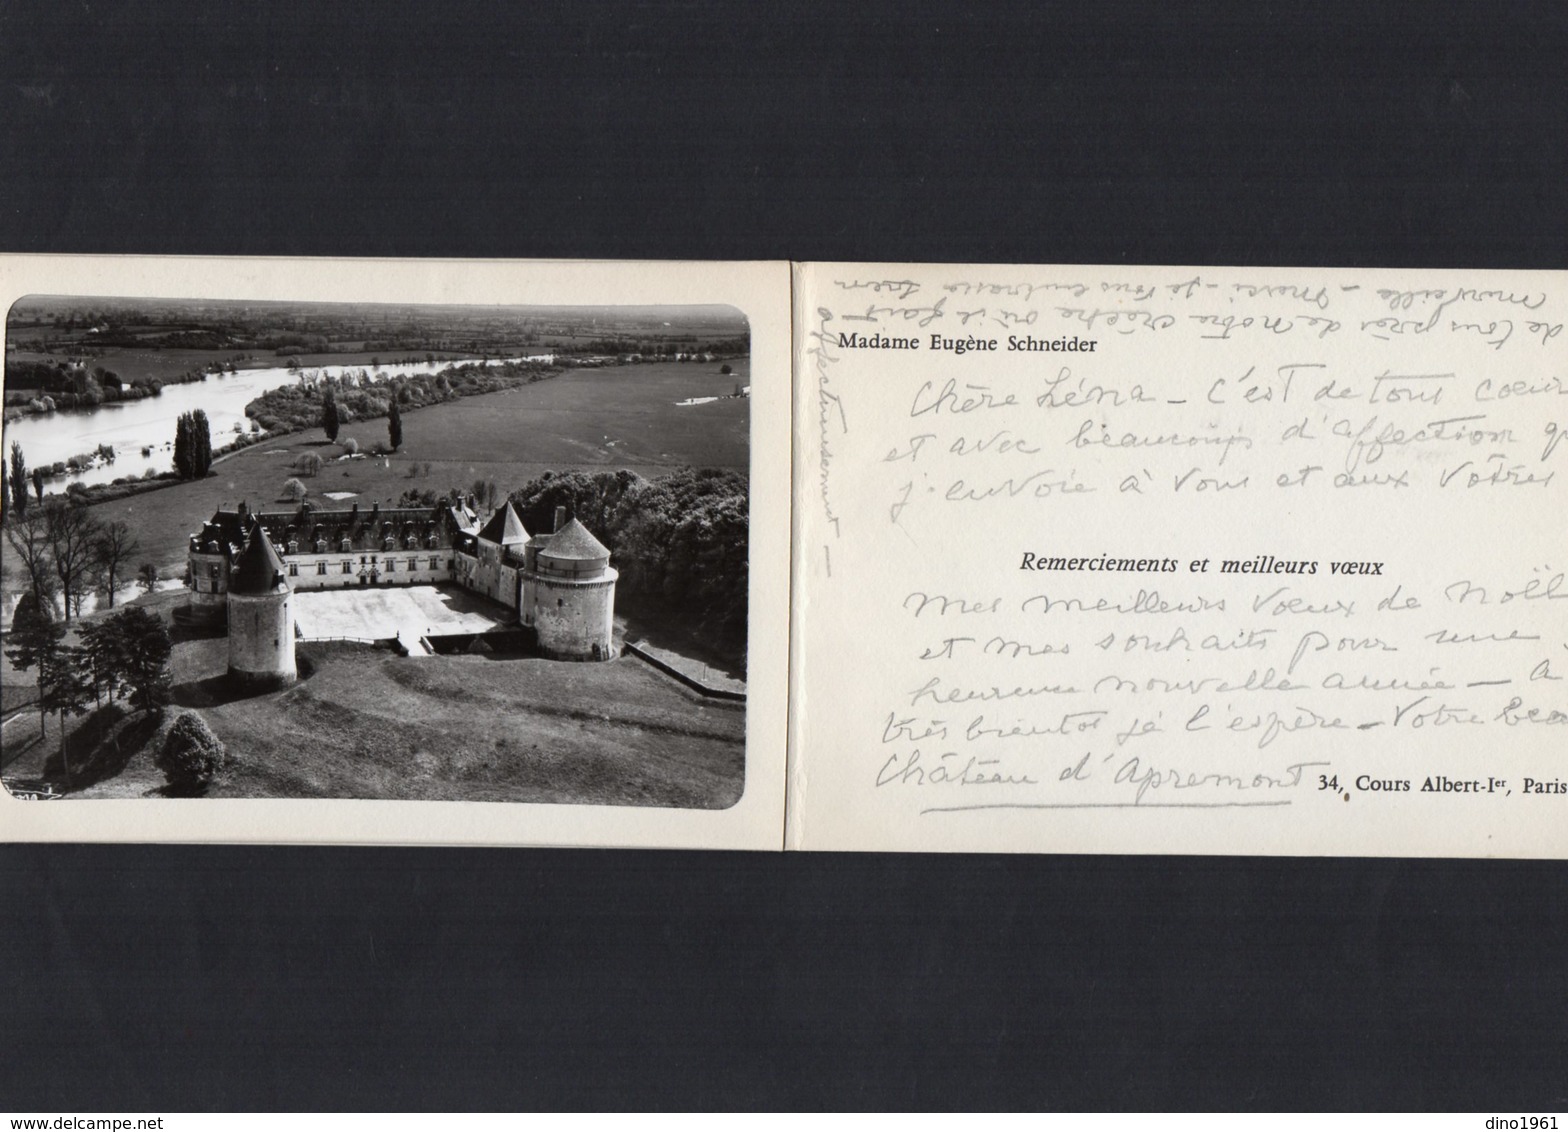 Madame Eugène Schneider
Chère Léna - C'est de tout coeur
et avec beaucoup d'affection
j'envoie à vous et aux vôtres
Remerciements et meilleurs vœux
Mes meilleurs vœux de Noël
et mes souhaits pour une
heureuse nouvelle année - A
très bientôt je l'espère - Votre
Château d'Apremont
34, Cours Albert-Ier, Paris
de tous près de notre crèche où il fait
merveille - Merci - je vous embrasse bien
affectueusement -
dino1961